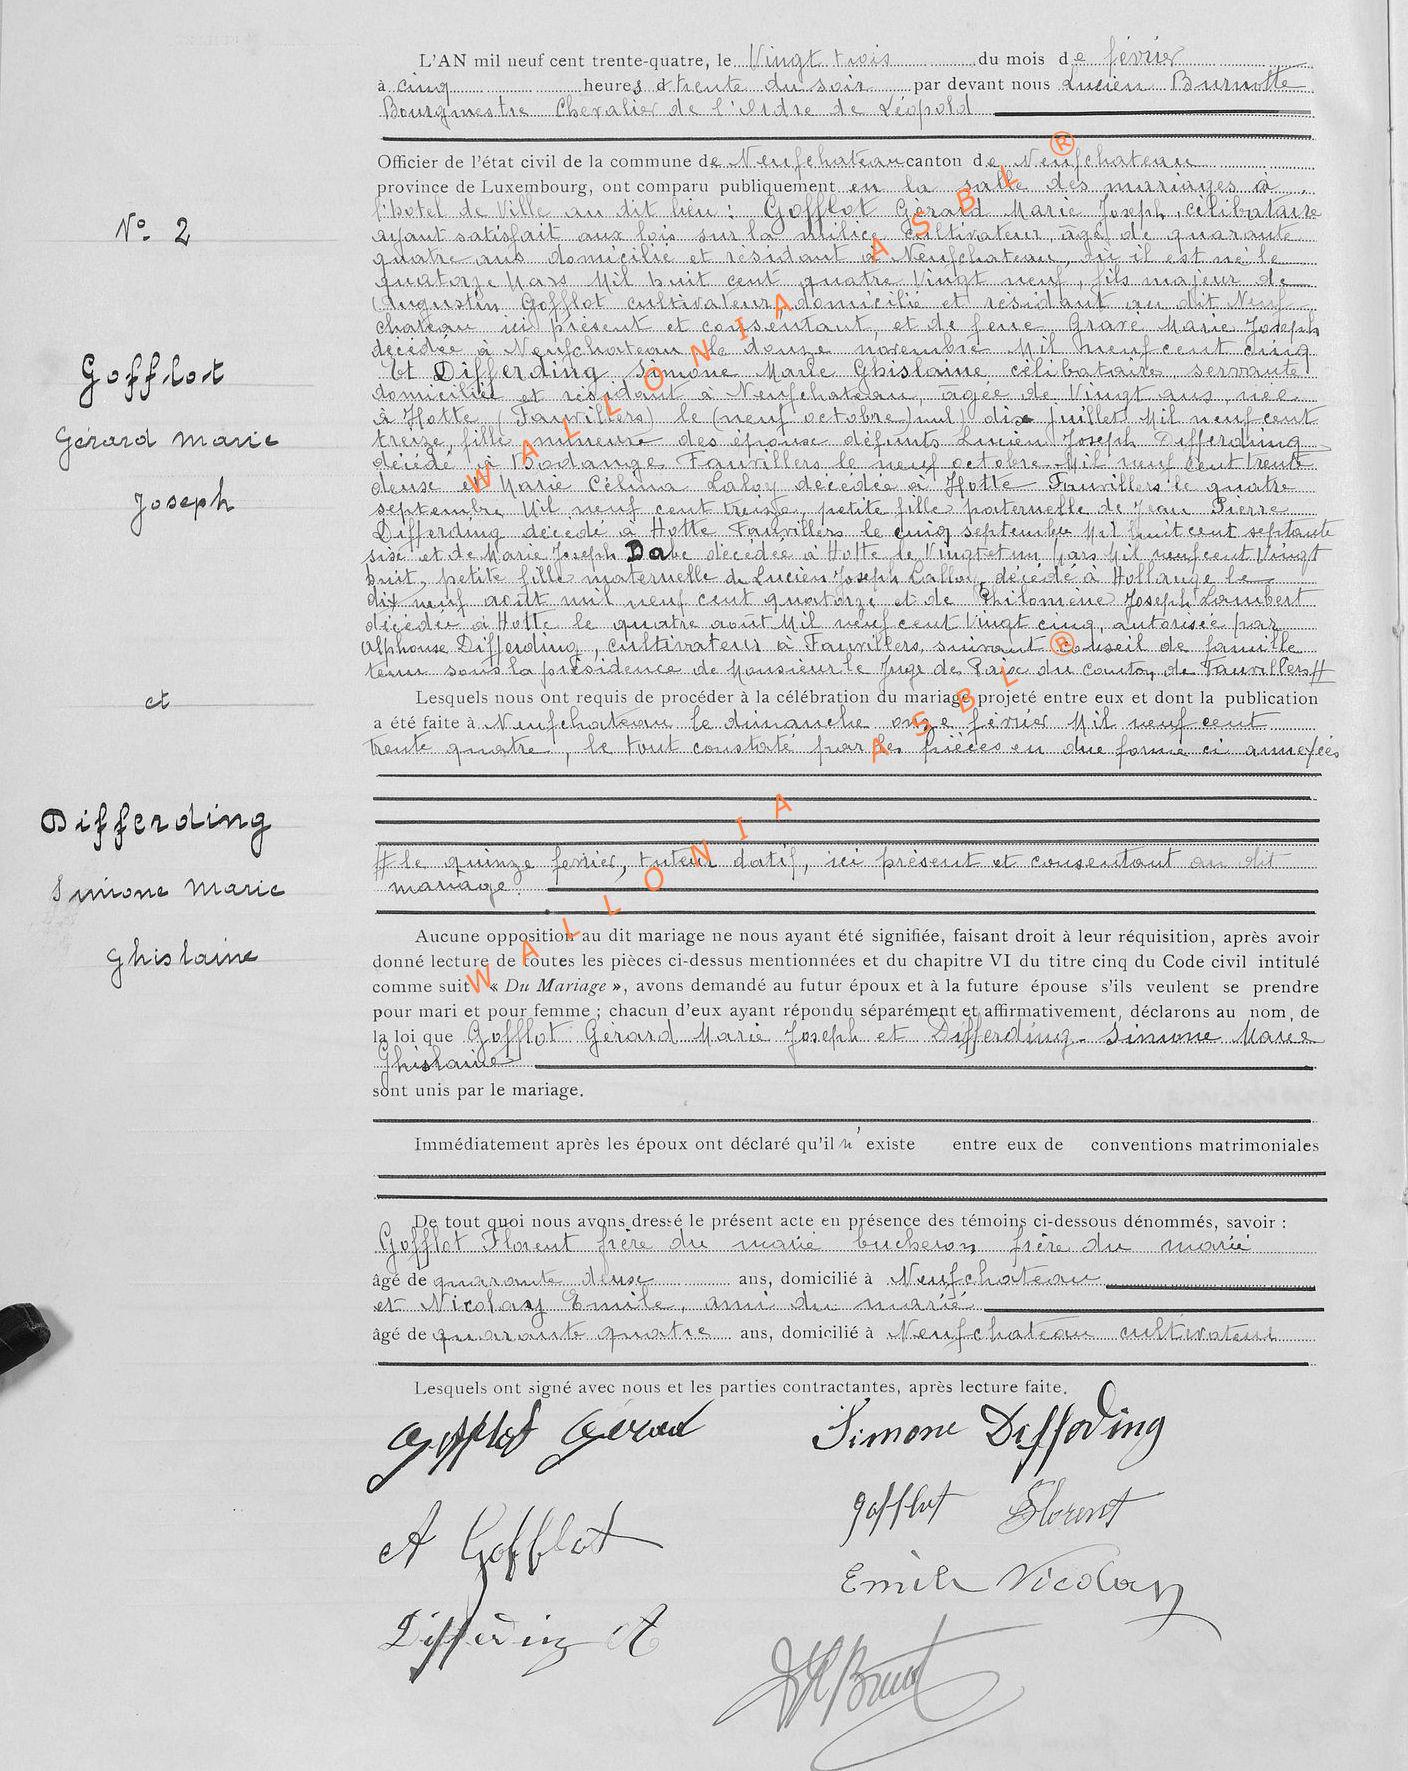 L'AN mil neuf cent trente-quatre, le Vingt trois du mois de février
à cinq heures et trente du soir par devant nous Lucien Burnotte
Bourgmestre Chevalier de l'Ordre de Léopold
Officier de l'état civil de la commune de Neufchateau canton de Neufchateau
province de Luxembourg, ont comparu publiquement en la salle des mariages à
l'hotel de Ville au dit lieu : Gofflot Gérard Marie Joseph, célibataire
ayant satisfait aux lois sur la milice cultivateur, âgé de quarante
N° 2
quatre ans domicilié et résidant à Neufchateau, où il est né le
quatorze Mars Mil huit cent quatre Vingt neuf, fils majeur de
Augustin Gofflot cultivateur domicilié et résidant au dit Neuf-
chateau ici présent et consentant, et de feue Grave Marie Joseph
décédée à Neufchateau le douze novembre Mil neuf cent cinq
Et Differding Simone Marie Ghislaine célibataire servante
Gofflot
domiciliée et résidant à Neufchateau, âgée de Vingt ans, née
à Hotte (Fauvillers) le (neuf octobre) nul) dix Juillet Mil neuf cent
Gérard Marie
treize, fille mineure des épouse défunts Lucien Joseph Differding
décédé à Bodange Fauvillers le neuf octobre Mil neuf cent trente
deux et Marie Célina Laloy décédée à Hotte Fauvillers le quatre
Joseph
septembre Mil neuf cent treize, petite fille paternelle de Jean Pierre
Differding décédé à Hotte Fauvillers le cinq septembre Mil huit cent septante
six et de Marie Joseph Dabe décédée à Hotte le Vingt et un Mars Mil neuf cent Vingt
huit, petite fille maternelle de Lucien Joseph Lalloy, décédé à Hollange le
dix neuf août mil neuf cent quatorze et de Philomène Joseph Lambert
décédée à Hotte le quatre août Mil neuf cent Vingt cinq, autorisée par
Alphonse Differding, cultivateur à Fauvillers, suivant conseil de famille
tenu sous la présidence de Monsieur le Juge de Paix du canton de Fauvillers #
et
Lesquels nous ont requis de procéder à la célébration du mariage projeté entre eux et dont la publication
a été faite à Neufchateau le dimanche onze février Mil neuf cent
trente quatre, le tout constaté par les pièces en due forme ci annexées
Differding
# le quinze fevrier, tuteur datif, ici présent et consentant au dit
mariage.
Simone Marie
Ghislaine
Aucune opposition au dit mariage ne nous ayant été signifiée, faisant droit à leur réquisition, après avoir
donné lecture de toutes les pièces ci-dessus mentionnées et du chapitre VI du titre cinq du Code civil intitulé
comme suit « Du Mariage », avons demandé au futur époux et à la future épouse s'ils veulent se prendre
pour mari et pour femme ; chacun d'eux ayant répondu séparément et affirmativement, déclarons au nom, de
la loi que Gofflot Gérard Marie Joseph et Differding Simone Marie
Ghislaine
sont unis par le mariage.
Immédiatement après les époux ont déclaré qu'il n'existe entre eux de conventions matrimoniales
De tout quoi nous avons dressé le présent acte en présence des témoins ci-dessous dénommés, savoir :
Gofflot Florent frère du marié bucheron frère du marié
âgé de quarante deux ans, domicilié à Neufchateau
et Nicolay Emile, ami du marié
âgé de quarante quatre ans, domicilié à Neufchateau cultivateur
Lesquels ont signé avec nous et les parties contractantes, après lecture faite.
Gofflot Gérard Simone Differding
Gofflot Florent
A Gofflot
Emile Nicolay
Differding A
WALLONIA ASBL ®
WALLONIA ASBL ®